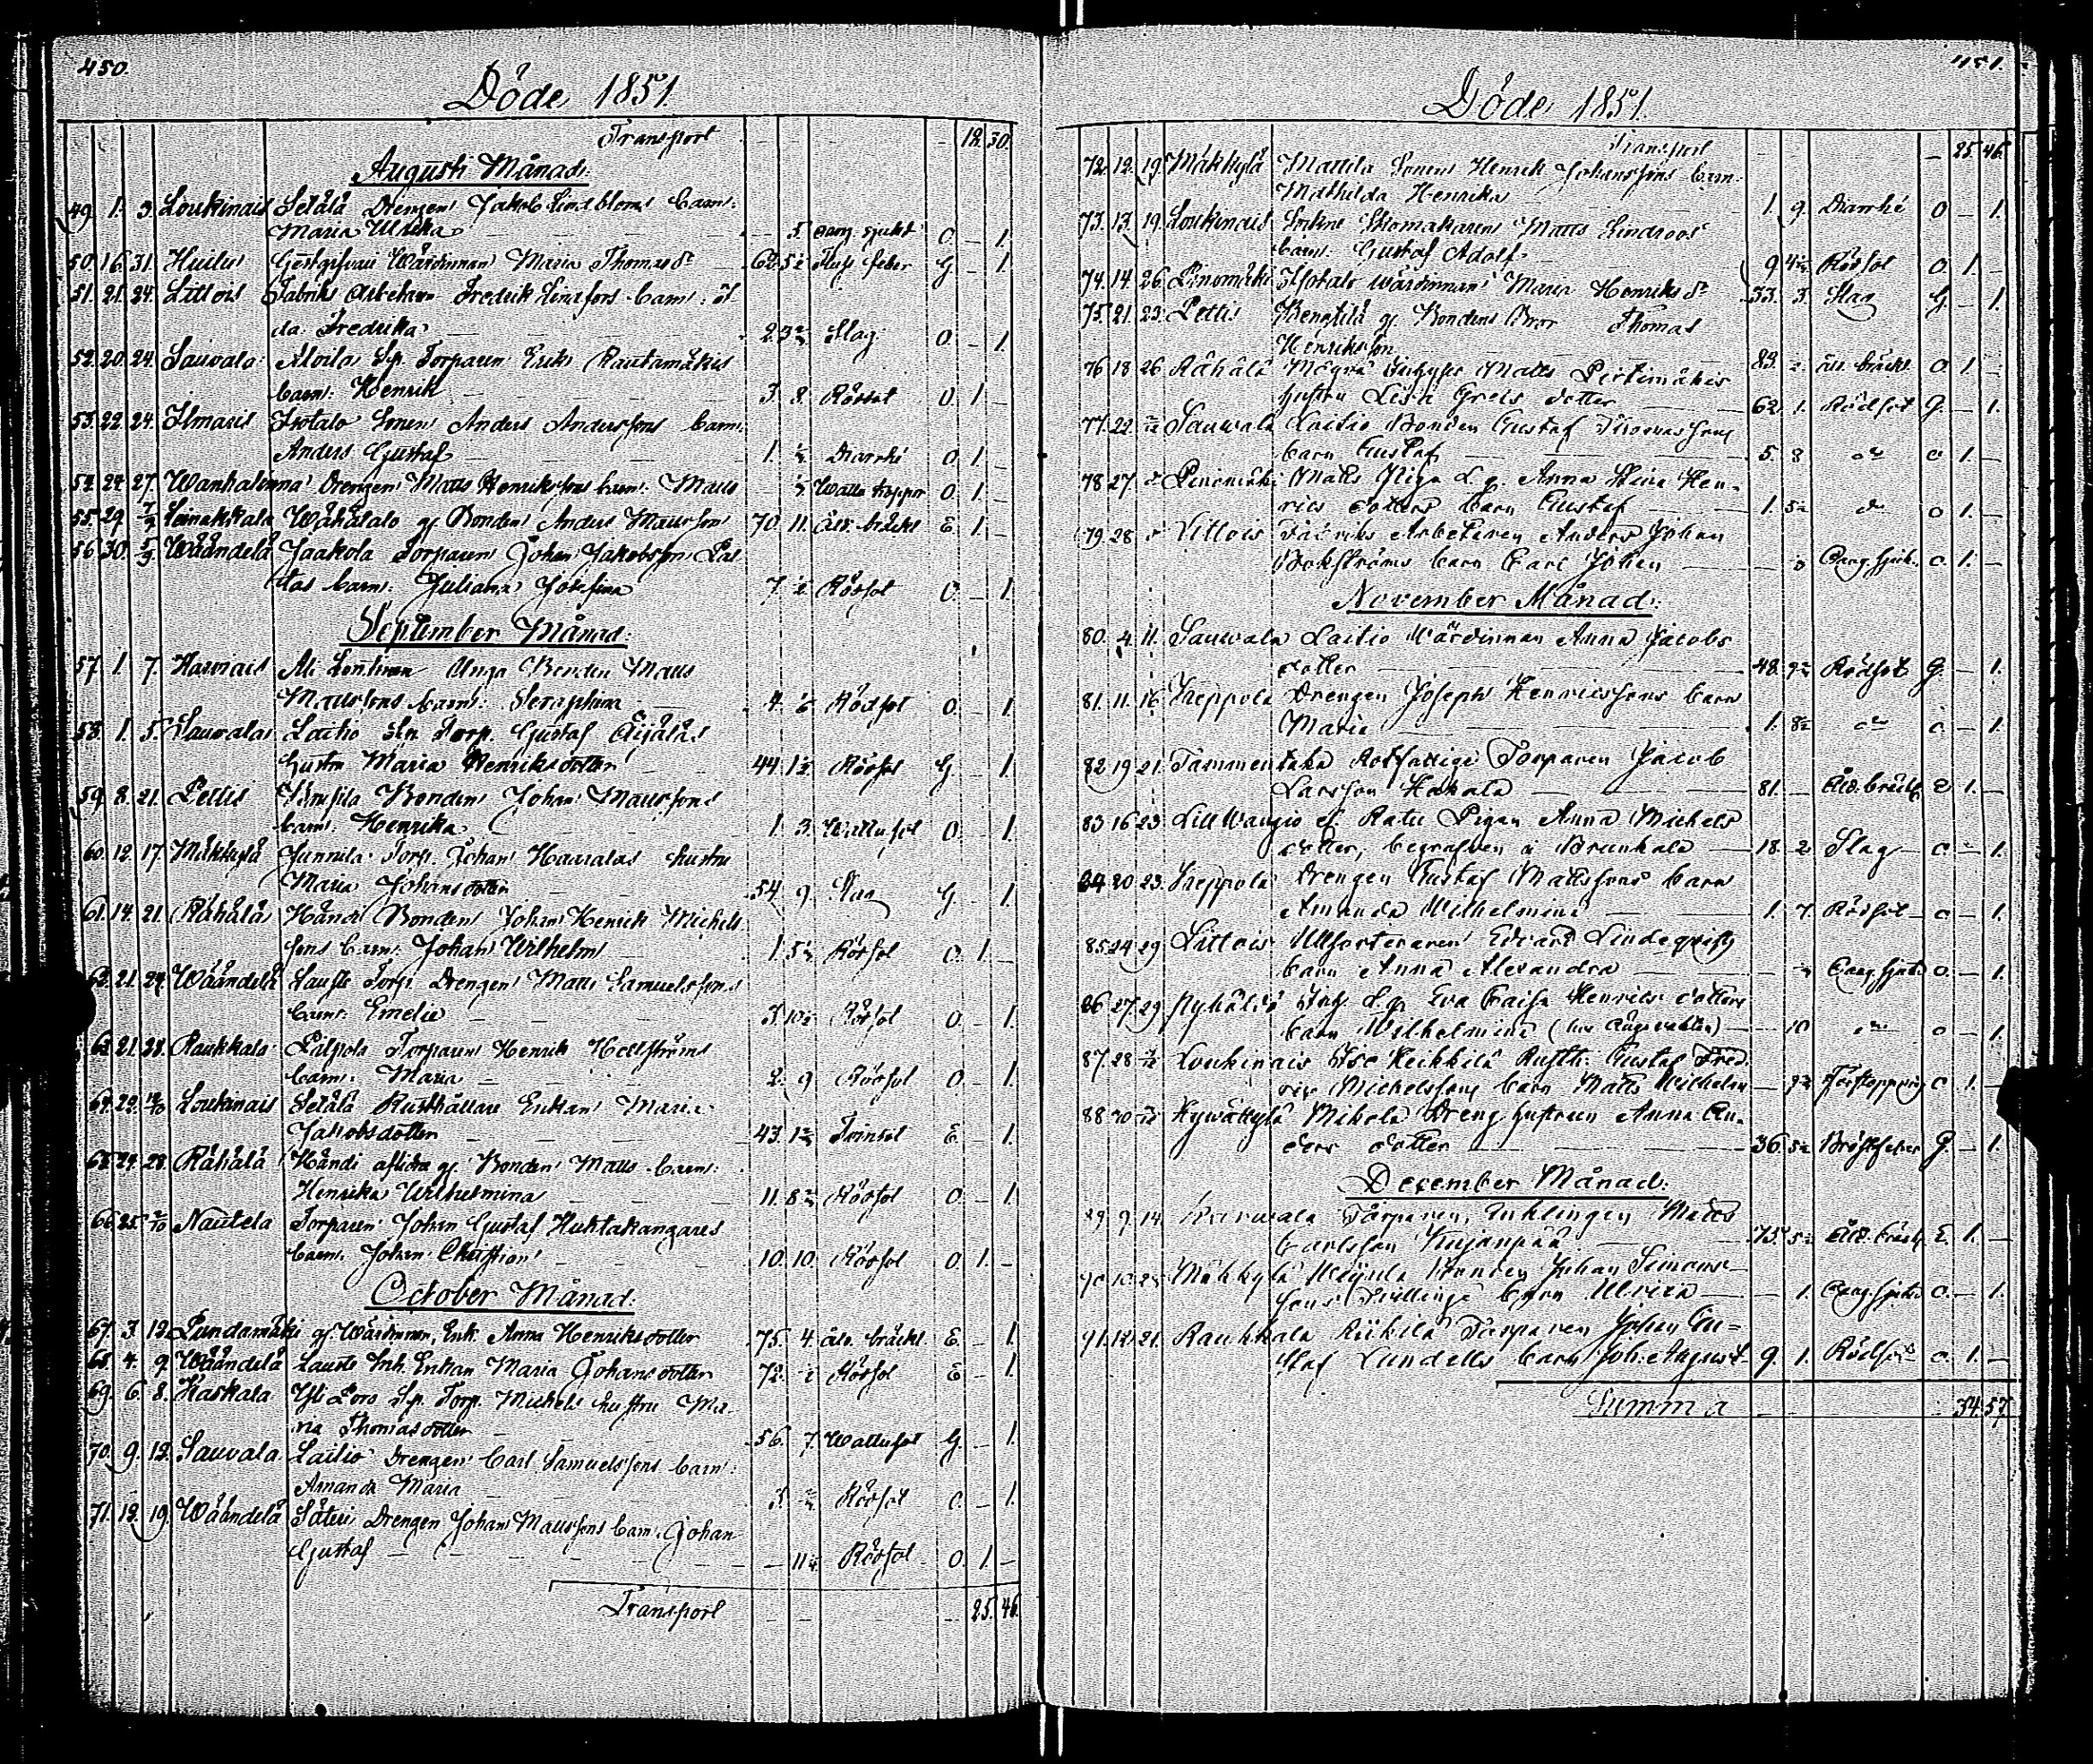 450.
Döde 1851.
Transport - - - 18. 30.
Augusti Månad:
49. 1. 3. Loukinais Setälä Drengen Jakob Lindbloms barn:
Maria Ulrika - - 5 Oang. sjukd. O. - 1.
50. 16. 31. Huilu Gästgifvari Wärdinnan Maria Thomas dr 62. 5½ feber G. - 1.
51. 21. 24. Littois Fabriks Arbetaren Fredrik Lindfors barn:
da Fredrika - 2. Slag O. - 1.
52. 20. 24. Sauvala Torparen Eriks Rautamäkis
barn: Henrik - 3. 8. Rödsot O. 1. -
53. 22. 24. Ilmaris Isotalo Sonen Anders Anderssons barn:
Anders Gustaf - 1. Diarrhé O. 1. -
54. 24. 27. Wanhalinna Drengen Matts Henrikssons barn: Matts - Wattu koppor O. 1. -
55. 29. 7/9 Wähätalo gl. Bonden Anders Mattsson 70. 11. Åld. bräckl. E. 1. -
56. 30. 5/9 Wääntelä Jaakola Torparen Johan Jakobsson
barn: Juliana Josefina 7. Rödsot O. - 1.
September Månad:
57. 1. 7. Bonden Matts
Mattssons barn: Seraphina - 4. 6 Rödsot O. - 1.
58. 1. 5. Sauvala Laitio Torp. Gustaf Äijäläs
hustru Maria Henriksdotter 44. 1½ Rödsot G. - 1.
59. 8. 21. Pettis Bonden Johan Mattssons
barn: Henrika 1. 3. Wattusot O. - 1.
60. 12. 17. Mäkkylä Junnila Torp. Johan hustru
Maria Johansdotter - 54. 9. Slag G. - 1.
61. 14. 21. Rähälä Händi Bonden Johan Henrik Michels
sons barn: Johan Wilhelm - 1. 5½ Rödsot O. 1. -
62. 21. 24. Wääntelä Lauste Torp. Drengen Matts Samuelssons
barn: Emelie - - 3. 10½ Rödsot O. - 1.
63. 21. 28. Raukkala Torparen Henrik Hellströms
barn: Maria - - 2. 9 Rödsot O. - 1.
64. 29. 12/10 Loukinais Setälä Rusthållare Enkan Maria
Jakobsdotter - - 43. Tvinsot E. - 1.
65. 24. 28. Rähälä Händi aflidna gl. Bonden Matts barn:
Henrika Wilhelmina - - 11. 8 Rödsot O. - 1.
66. 25. Nautela Torparen Johan Gustaf Huhtakangares
barn: Johan Christian - 10. 10. Rödsot O. 1. -
October Månad:
67. 3. 12. gl. Wärdinnan, Enk. Anna Henriksdotter 75. 4. åld. bräckl. E. - 1.
68. 4. 9. Wääntelä Lauste Inh. Enkan Maria Johansdotter 72. Rödsot E. - 1.
69. 6. 8. Kaskala Yli Torp. Michels hustru Ma-
ria Thomasdotter - 56. 7. Wattusot G. - 1.
70. 9. 12. Sauvala Laitio Drengen Carl Samuelssons barn:
Amanda Maria - 3. Rödsot O. - 1.
71. 12. 19. Wääntelä Säteri Drengen Johan Mattssons barn: Johan
Gustaf - - 11 Rödsot O. 1. -
Transport - - - 25. 46.
451.
Döde 1851.
Transport - - - 25. 46.
72. 12. 19. Mäkkylä Mattila Sonen Henrik Johanssons barn:
Mathilda Henrika - 1. 9. Diarrhé O - 1.
73. 13. 19. Loukinais Sockne Skomakaren Matts Lindroos
barn: Gustaf Adolf - 9 4½ Rödsot O. 1. -
74. 14. 26. Isotalo Wärdinnan Maria Henriks dr 33. 3. Slag G. - 1.
75. 21. 23. Pettis Bengtilä gl. Bondens Bror Thomas
Henriksson 83. - åld. bräckl. O 1. -
76. 18. 26. Rähälä Matts
hustru Lisa Greis dotter 62. 1. Rödsot G. - 1.
77. 22. Sauwala Laitio Bonden Gustaf Thomassons
barn Gustaf - 5. 8 do O 1. -
78. 27. Matts Piga Anna Stina Hen-
rics dotters barn Gustaf - 1. 5½ do O 1. -
79. 28. Littois Fabriks Arbetaren Anders Johan
Bokströms barn Carl Johan - Oang. sjuk. O. 1. -
November Månad:
80. 4. 11. Sauwala Laitio Wärdinnan Anna Jacobs
dotter - 48. 9½ Rödsot G. - 1.
81. 11. 16. Kreppola Drengen Joseph Henricssons barn
Maria - 1. 8½ do O - 1.
82. 19. 21. Tammentaka Rotfattige Torparen Jacob
Larsson Hakala - 81. - Åld. bräckl. E 1. -
83. 16. 23. Lill Wangio Ratu Pigan Anna Michels
dotter, begrafven i Brunkala - 18. 2 Slag O - 1.
84. 20. 23. Kreppola Drengen Gustaf Mattssons barn
Amanda Wilhelmina - 1. 7. Rödsot O - 1.
85. 24. 29. Littois Ullsorteraren Edvard Lindeqvists
barn Anna Alexandra - Oang. sjukd. O. - 1.
86. 27. 29. Eva Caisa Henrics dotters
barn Wilhelmina - 10 do O - 1.
87. 28. Loukinais Iso Heikkilä Rusth. Gustaf Fred-
ric Michelssons barn Matts Wilhelm - Förstoppning O 1. -
88. 30. Hywäkylä Mikola Dreng hustrun Anna An-
ders dotter - 36. 5½ Bröstfeber G. - 1.
December Månad:
89. 9. 14. Torparen, Enklingen Matts
Carlsson Kujanpää - 75. 5½ Åld. bräckl. E. 1. -
90. 10. 25. Mäkkylä Bonden Johan Simons-
sons Tvillinge barn Ulrica - 1. Oang. sjukd. O. - 1.
91. 12. 21. Raukkala Torparen Johan Gu=
staf Lundells barn Joh. August 9. 1. Rödsot O. 1. -
Summa - - - 34. 57.